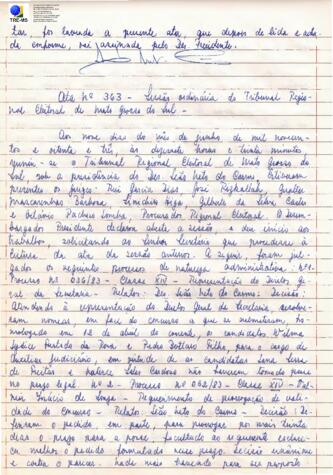 TRE-MS
tar, foi lavrada a presente ata, que depois de lida e acha-
da conforme, vai assinada pelo Des. Presidente.
Ata Nº 363 - Sessão ordinária do Tribunal Regio-
nal Eleitoral de Mato Grosso do Sul -
Aos nove dias do mês de junho de mil novecen-
tos e oitenta e três, às dezessete horas e trinta minutos
reuniu-se o Tribunal Regional Eleitoral de Mato Grosso do
Sul, sob a presidência do Des. Leão Neto do Carmo. Estiveram
presentes os juízes: Rui Garcia Dias, José Rizkallah,
Mascarenhas Barbosa, Higa, Gilberto da Silva Castro
e Pacheco Lomba, Procurador Regional Eleitoral. O Desem-
bargador Presidente declarou aberta a sessão, e deu início aos
trabalhos, solicitando ao Senhor Secretário que procedesse à
leitura da ata da sessão anterior. A seguir, foram jul-
gados os seguintes processos de natureza administrativa: Nº 1 -
Processo Nº 036/83 - Classe XIV - Representação do Diretor Ge-
ral da Secretaria - Relator: Des. Leão Neto do Carmo: Decisão:
Atendendo à representação do Diretor Geral da Secretaria, resolve-
ram nomear, em face do concurso que se mencionou, ho-
mologado em 12 de abril do corrente, os candidatos Wilson
Furtado da Rosa e Pedro Filho para o cargo de
Auxiliar Judiciário, em de as candidatas Lana
de Freitas Sales Cardoso não haverem tomado posse
no prazo legal. Nº 2 - Processo Nº 062/83 - Classe XIV -
Inácio de - Requerimento de prorrogação de vali-
dade do Concurso - Relator: Leão Neto do Carmo - Decisão: De-
feriram o pedido, em parte, para prorrogar por mais trinta
dias o prazo para a posse, facultado ao requerente esclare-
cer melhor o pedido formulado nesse prazo. Decisão unânime
e contra o parecer. Nada mais havendo para